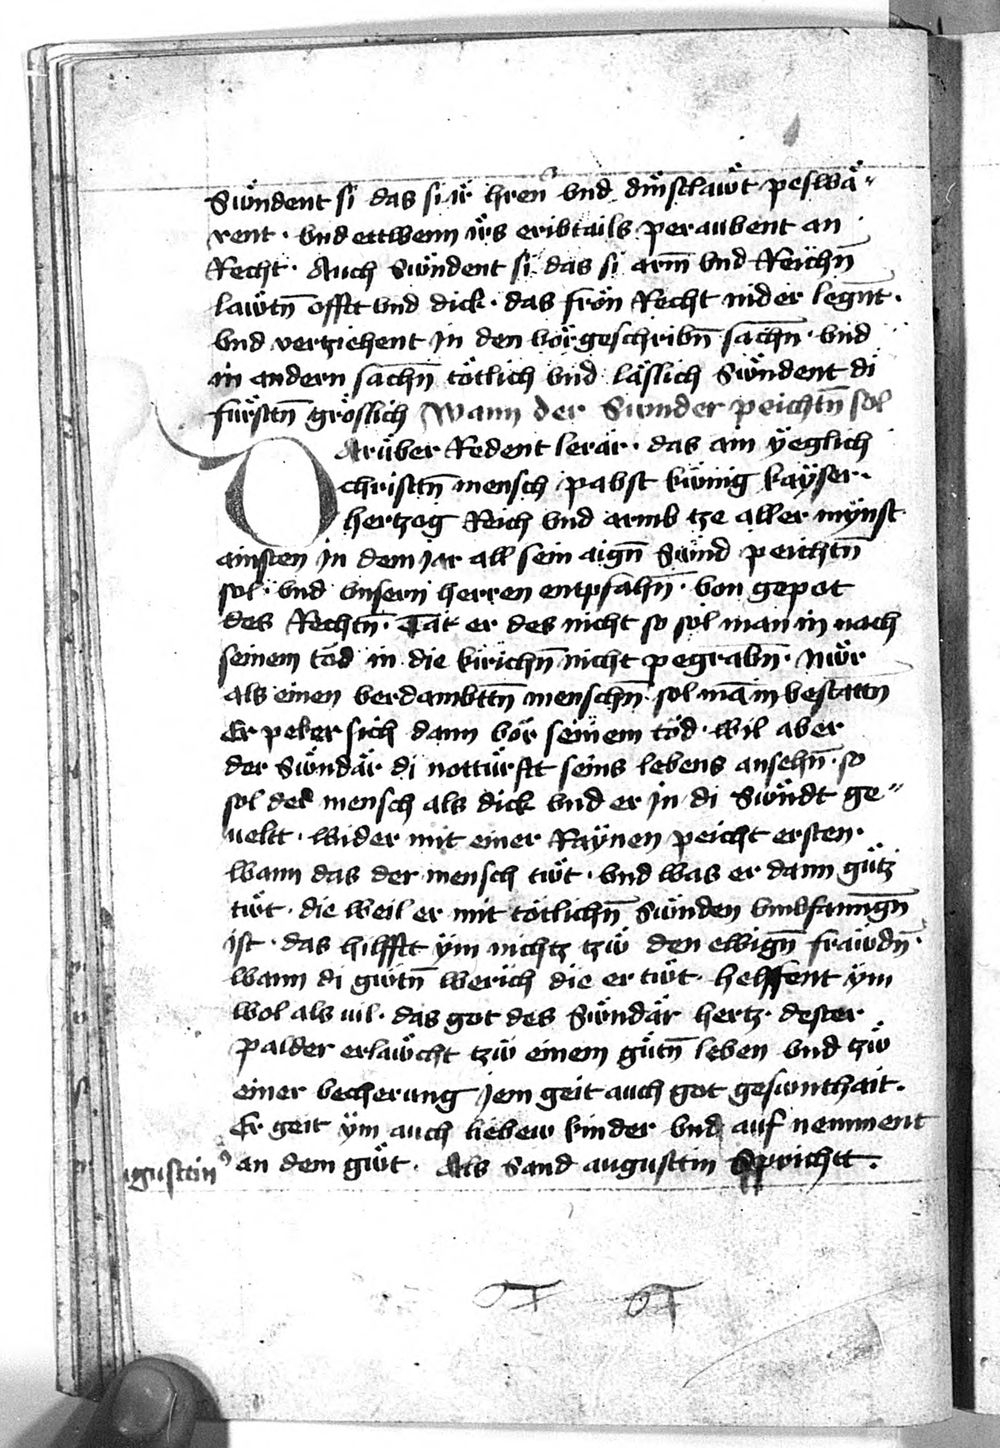 Swͤndent si das si ir hern vnd dinͤstlawͤt peswaͤ-
rent · vnd ettwenn irͤs eribtails peraubent an
Recht · Auch Swͤndent si das si arm̄ vnd Reichn̄
lawͤtn̄ offtt vnd dick · das froͤn Recht nider legn̄t ·
vnd vertziehent Jn den voͤrgeschribn̄ sachn̄ · vnd
in andern sachn̄ toͤtlich vnd laͤslich Swͤndent di
fuͤrsttn̄ groͤslich Wann der Sunder peichtn̄ sol
Daruͤber Redent lerar · das ain yͤeglich
christtn̄ mensch pabst kwͤnig kayͤser ·
hertzog Reich vnd armb tze aller myͤnst
ainsten Jn dem Jar all sein aign̄ Swͤnd peichtn̄
sol · vnd vnsern herren entpfahn̄ · von gepot
des Rechtn̄ · Tat er des nicht so sol man in nach
seinem tod in die kirichn̄ nicht pegrabn̄ · Nwͤr
als einen verdambttn̄ menschn̄ sol mā in bestattn
Er peker sich dann voͤr seinem tod · wil aber
der Swͤndaͤr di notturͤftt seins lebens ansehn̄ · so
sol der mensch als dick vnd er Jn di Swͤndt ge-
veltt · wider mit einer Rayͤnen peicht ersten ·
wann das der mensch twͤt · vnd was er dann guͤtz
twͤt · die weil er mit toͤtlichn̄ Swͤnden vmbfanngn̄
ist · das hilfftt yͤm nichtz tzwͤ den ewign̄ frawͤdn̄ ·
wann di gwͤtn̄ werich die er twͤt · helffent yͤm
wol als uil · das got des Swͤndaͤr hertz · dester
palder erlawͤcht tzwͤ einem guͤtn̄ leben vnd tzwͤ
einer becherung Jem geit auch got gesunthait ·
Er geit yͤm auch liebew kinder vnd auf nemment
an dem gwͤt · Als Sand augusttin Sprichtt ·
ugusttin⁹